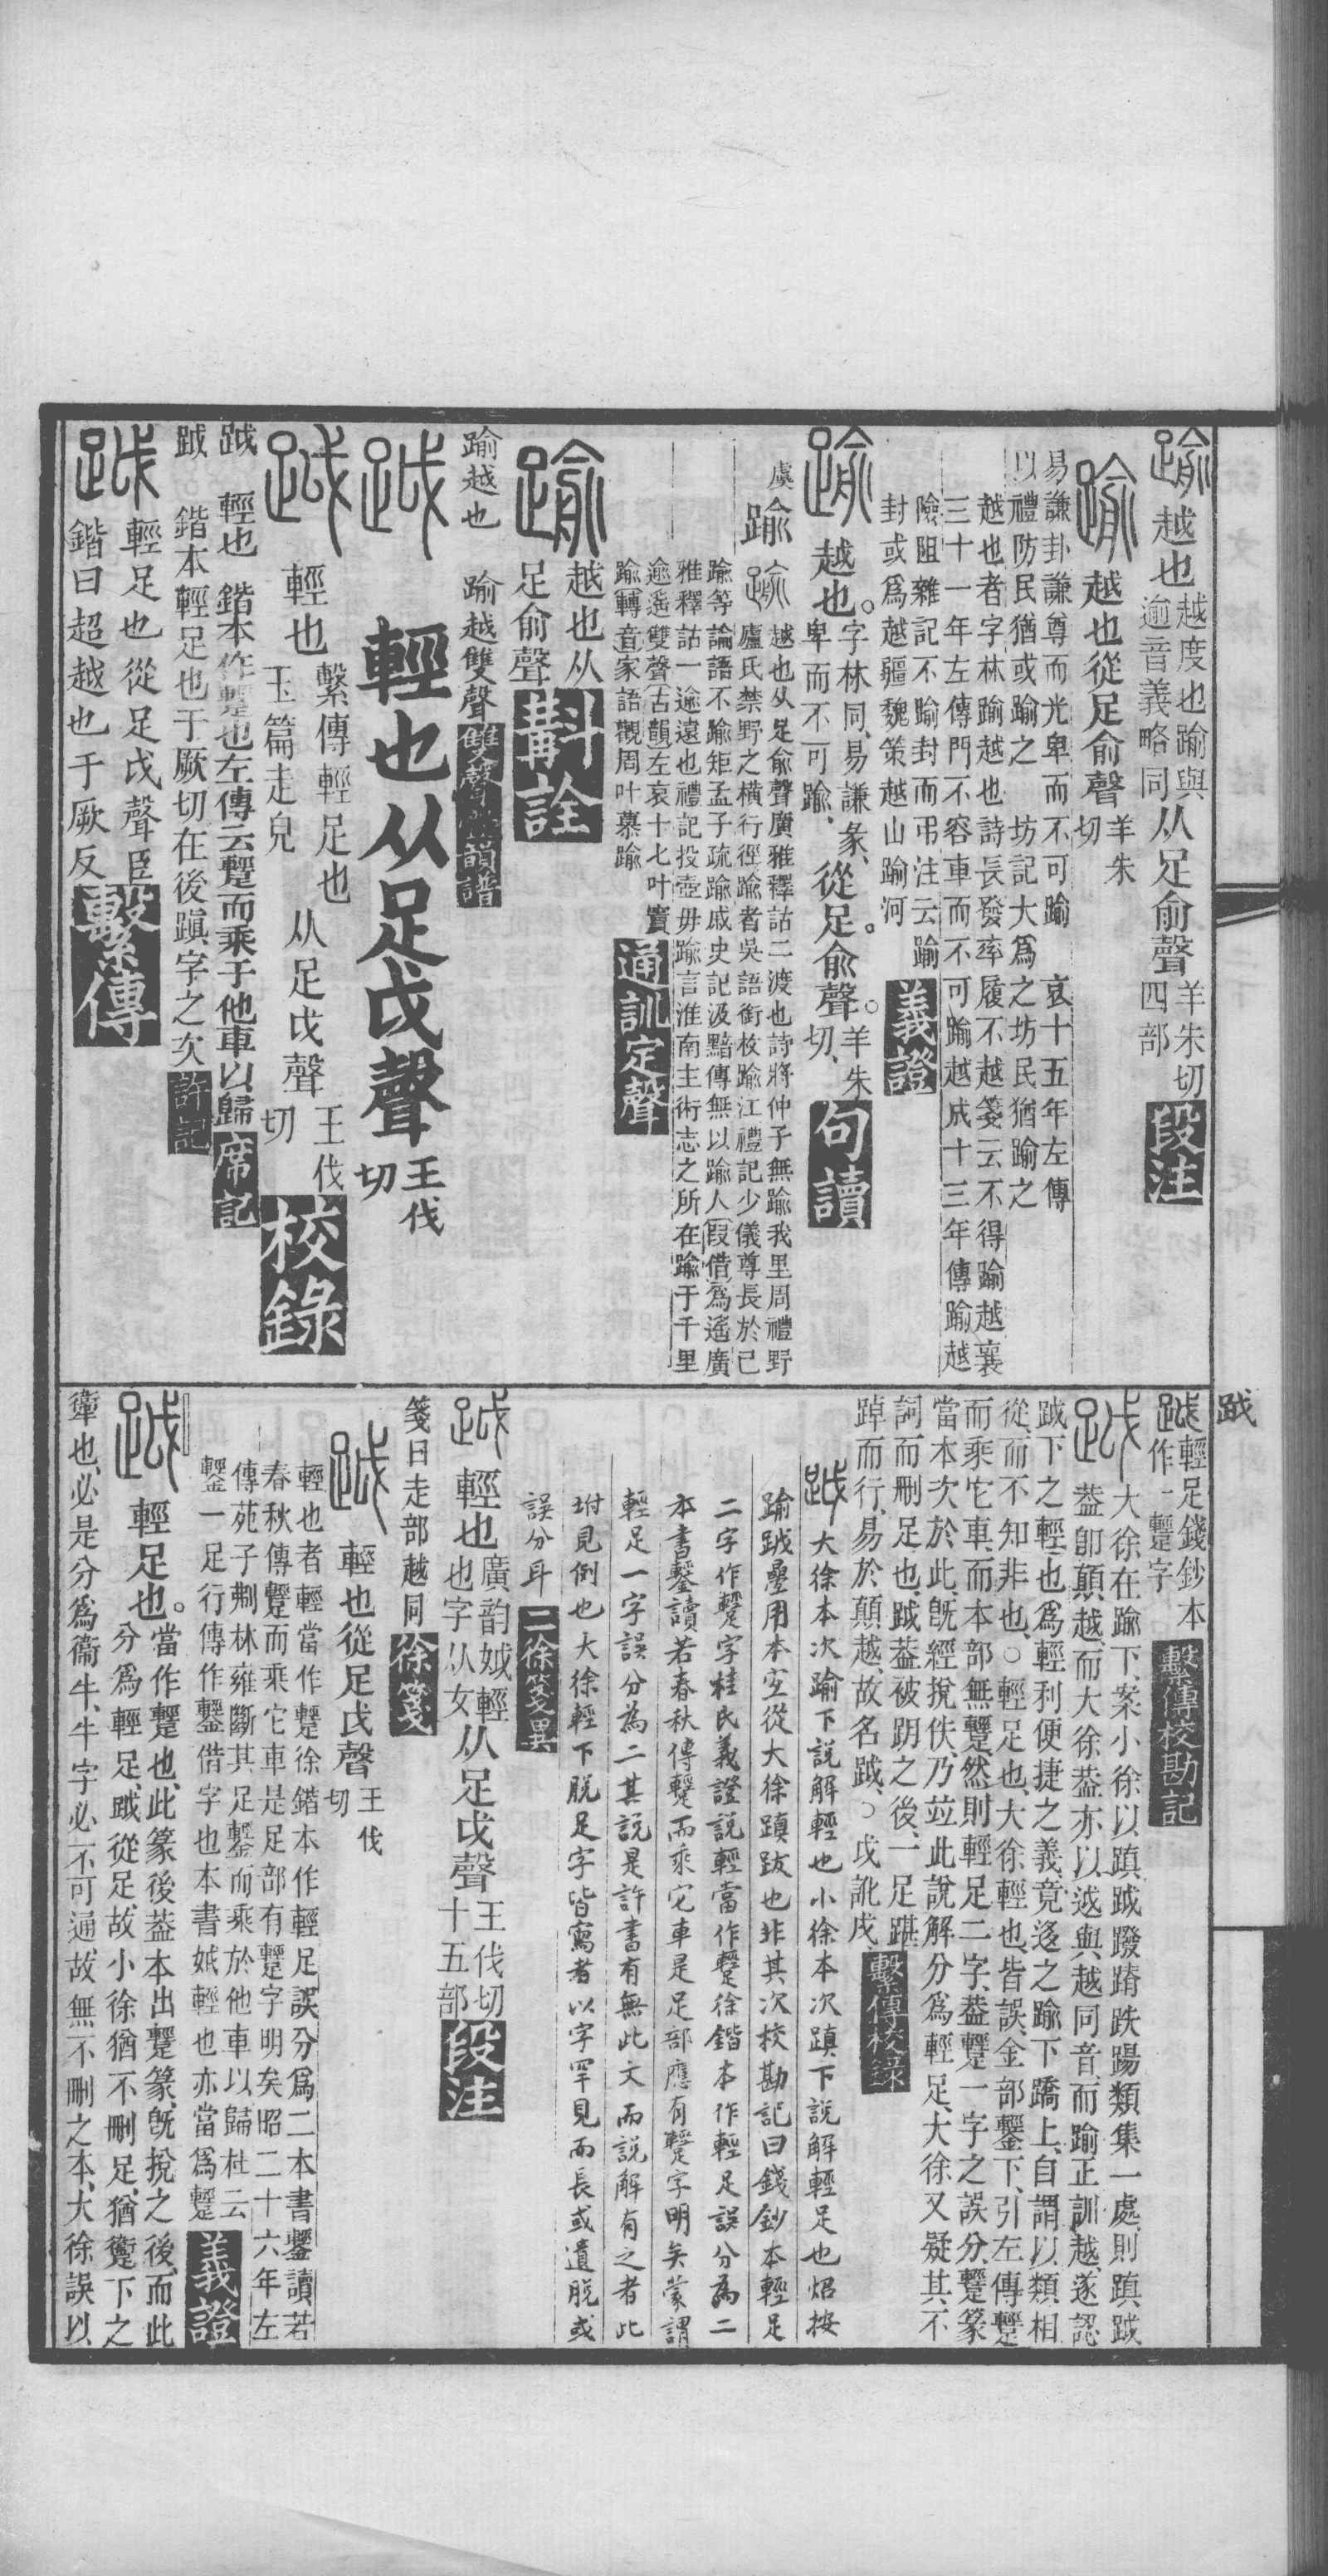 踰 越也越度也踰與
逾音義略同从足俞聲羊朱切
四部段注
踰 越也從足俞聲羊朱
切
易謙卦謙尊而光卑而不可踰 哀十五年左傳
以禮防民猶或踰之 坊記大爲之坊民猶踰之
越也者字林踰越也詩長發率履不越箋云不得踰越襄
三十一年左傳門不容車而不可踰越成十三年傳踰越
險阻雜記不踰封而弔注云踰
封或爲越疆魏策越山踰河義證
踰 越也。字林同、易謙彖、
卑而不可踰、從足。俞聲。羊朱
切、句讀
虞踰 踰 越也从足俞聲廣雅釋詁二渡也詩將仲子無踰我里周禮野
廬氏禁野之橫行徑踰者吳語銜枚踰江禮記少儀尊長於己
踰等論語不踰矩孟子疏踰戚史記汲黯傳無以踰人叚借爲遙廣
雅釋詁一逾遠也禮記投壺毋踰言淮南主術志之所在踰于千里
逾遙雙聲古韻左哀十七叶竇
踰轉音家語觀周叶慕踰通訓定聲
踰 越也从
足俞聲斠詮
踰越也 踰越雙聲雙聲疊韻譜
跋 輕也从足戉聲王伐
切
䟠 輕也繫傳輕足也
玉篇走皃 从足戉聲王伐
切校錄
䟠 輕也 鍇本作躗也左傳云躗而乘于他車以歸席記
䟠 鍇本輕足也于厥切在後蹎字之次許記
䟠 輕足也從足戉聲臣
鍇曰超越也于厥反繫傳
䟠
䟠輕足錢鈔本
作一躗字繫傳校勘記
䟠 大徐在踰下、案小徐以蹎䟠蹳蹐跌踢類集一處、則蹎䟠
葢卽顛越、而大徐葢亦以䟠與越同音、而踰正訓越、遂認
䟠下之輕也、爲輕利便捷之義、竟迻之踰下蹻上、自謂以類相
從、而不知非也、○輕足也、大徐輕也、皆誤、金部鑋下、引左傳躗
而乘它車、而本部無躗、然則輕足二字、葢躗一字之誤分、躗篆
當本次於此、旣經捝佚、乃竝此說解分爲輕足、大徐又疑其不
詞而刪足也、䟠葢被刖之後、一足踸
踔而行、易於顛越、故名䟠、○戉訛戌、繫傳校錄
䟠 大徐本次踰下說解輕也小徐本次蹎下說解輕足也炤按
踰䟠壘用本宐從大徐蹎跋也非其次校勘記曰錢鈔本輕足
二字作躗字桂氏義證說輕當作躗徐鍇本作輕足誤分為二
本書鑋讀若春秋傳躗而乘它車是足部應有躗字明矣蒙謂
輕足一字誤分為二其說是許書有無此文而說解有之者此
坿見例也大徐輕下脫足字皆寫者以字罕見而長或遺脫或
誤分耳二徐箋異
䟠 輕也廣韵娍輕
也字从女从足戉聲王伐切
十五部段注
箋曰走部越同徐箋
䟠 輕也從足戉聲王伐
切
輕也者輕當作躗徐鍇本作輕足誤分爲二本書鑋讀若
春秋傳躗而乘它車是足部有躗字明矣昭二十六年左
傳苑子刜林雍斷其足鑋而乘於他車以歸杜云
鑋一足行傳作鑋借字也本書娍輕也亦當爲躗義證
䟠 輕足也。當作躗也、此篆後葢本出躗篆、旣捝之後、而此
分爲輕足、䟠從足、故小徐猶不刪足、猶躛下之
㹑也、必是分爲衞牛、牛字必不可通、故無不刪之本、大徐誤以